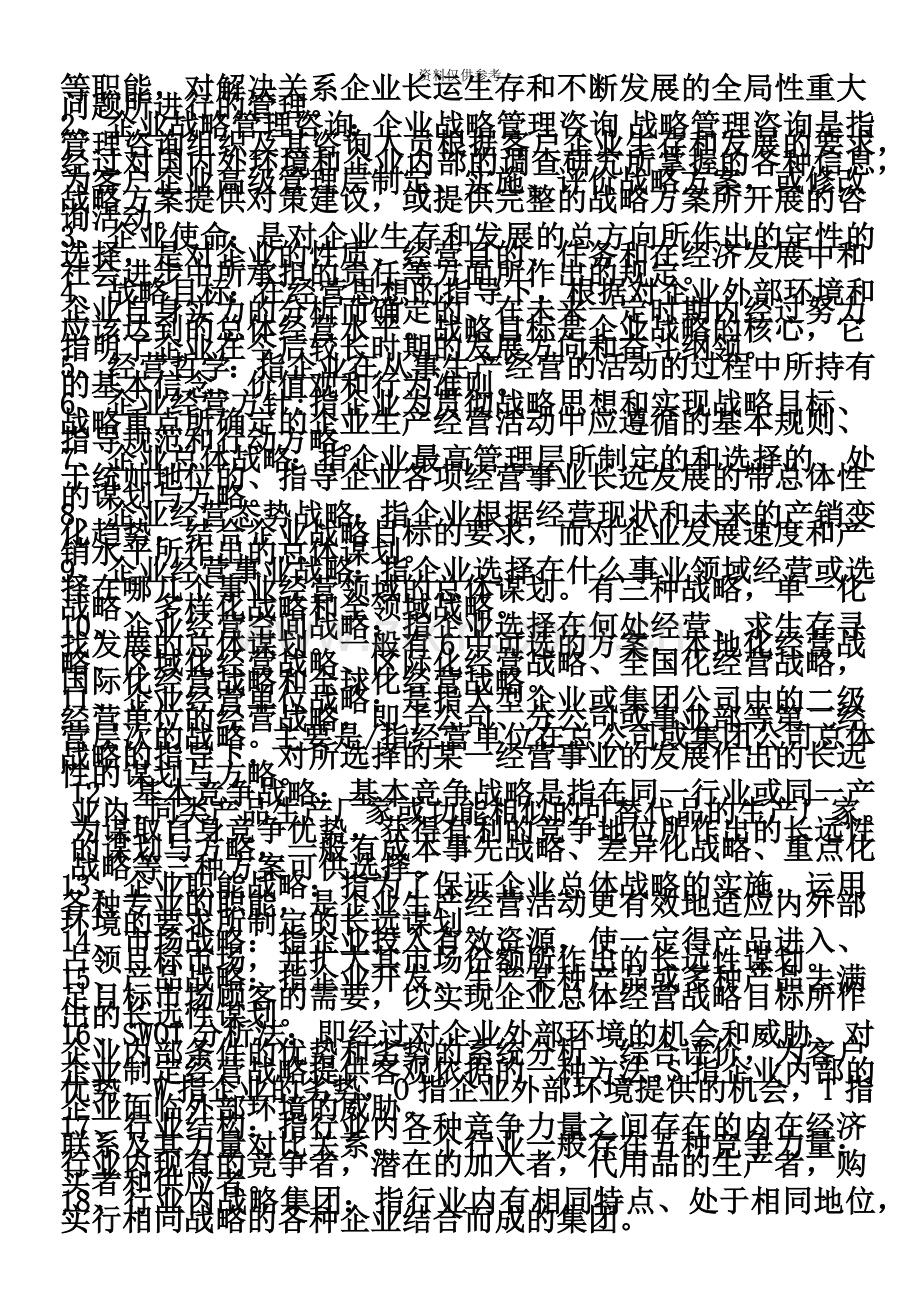 资料仅供参考
等职能，对解决关系企业长远生存和不断发展的全局性重大
问题所进行的管理。
2、企业战略管理咨询：企业战略管理咨询 战略管理咨询是指
管理咨询组织及其咨询人员根据客户企业生存和发展的要求，
经过对国内外环境和企业内部的调查研究所掌握的各种信息，
为客户企业高级管理层制定、实施、评价战略方案，或修改
战略方案提供对策建议，或提供完整的战略方案所开展的咨
询活动。
3、企业使命：是对企业生存和发展的总方向所作出的定性的
选择，是对企业的性质、经营目的、任务和在经济发展中和
社会进步中所承担的责任等方面所作出的规定。
4、战略目标：在经营思想的指导下，根据对企业外部环境和
企业自身实力的分析而确定的、在未来一定时期内经过努力
应该达到的总体经营水平。战略目标是企业战略的核心，它
指明了企业在今后较长时期的发展方向和奋斗纲领。
5、经营哲学：指企业在从事生产经营的活动的过程中所持有
的基本信念、价值观和行为准则。
6、企业经营方针：指企业为贯彻战略思想和实现战略目标、
战略重点所确定的企业生产经营活动中应遵循的基本规则、
指导规范和行动方略。
7、企业总体战略：指企业最高管理层所制定的和选择的、处
于统帅地位的、指导企业各项经营事业长远发展的带总体性
的谋划与方略。
8、企业经营态势战略：指企业根据经营现状和未来的产销变
化趋势，结合企业战略目标的要求，而对企业发展速度和产
销水平所作出的总体谋划。
9、企业经营事业战略：指企业选择在什么事业领域经营或选
择在哪几个事业经营领域的总体谋划。有三种战略，单一化
战略、多样化战略和全领域战略。
10、企业经营空间战略：指企业选择在何处经营、求生存寻
找发展的总体谋划。一般有6中可选的方案：本地化经营战
略、区域化经营战略、区际化经营战略、全国化经营战略，
国际化经营战略和全球化经营战略。
11、企业经营单位战略：是指大型企业或集团公司中的二级
经营单位的经营战略，即子公司、分公司或事业部等第一经
营层次的战略。主要是/指经营单位在总公司或集团公司总体
战略的指导下，对所选择的某一经营事业的发展作出的长远
性的谋划与方略。
12、基本竞争战略：基本竞争战略是指在同一行业或同一产
业内,同类产品生产厂家或功能相似的可替代品的生产厂家。
为谋取自身竞争优势，获得有利的竞争地位所作出的长远性
的谋划与方略，一般有成本事先战略、差异化战略、重点化
战略等三种方案可供选择。
13、企业职能战略：指为了保证企业总体战略的实施，运用
各种专业的职能，是企业生产经营活动更有效地适应内外部
环境的要求所制定的长远谋划。
14、市场战略：指企业投入有效资源，使一定得产品进入、
占领目标市场，并扩大其市场份额所作出的长远性谋划。
15、产品战略：指企业开发、生产某种产品或多种产品去满
足目标市场顾客的需要，以实现企业总体经营战略目标所作
出的长远性谋划。
16、SWOT 分析法：即经过对企业外部环境的机会和威胁、对
企业内部条件的优势和劣势的系统分析、综合评价，为客户
企业制定经营战略提供客观依据的一种方法 S 指企业内部的
优势，W 指企业的劣势，O 指企业外部环境提供的机会，T 指
企业面临外部环境的威胁。
17、行业结构：指行业内各种竞争力量之间存在的内在经济
联系及其力量对比关系。一个行业一般存在五种竞争力量：
行业内现有的竞争者，潜在的加入者，代用品的生产者，购
买者和供应者。
18、行业内战略集团：指行业内有相同特点、处于相同地位，
实行相同战略的各种企业结合而成的集团。